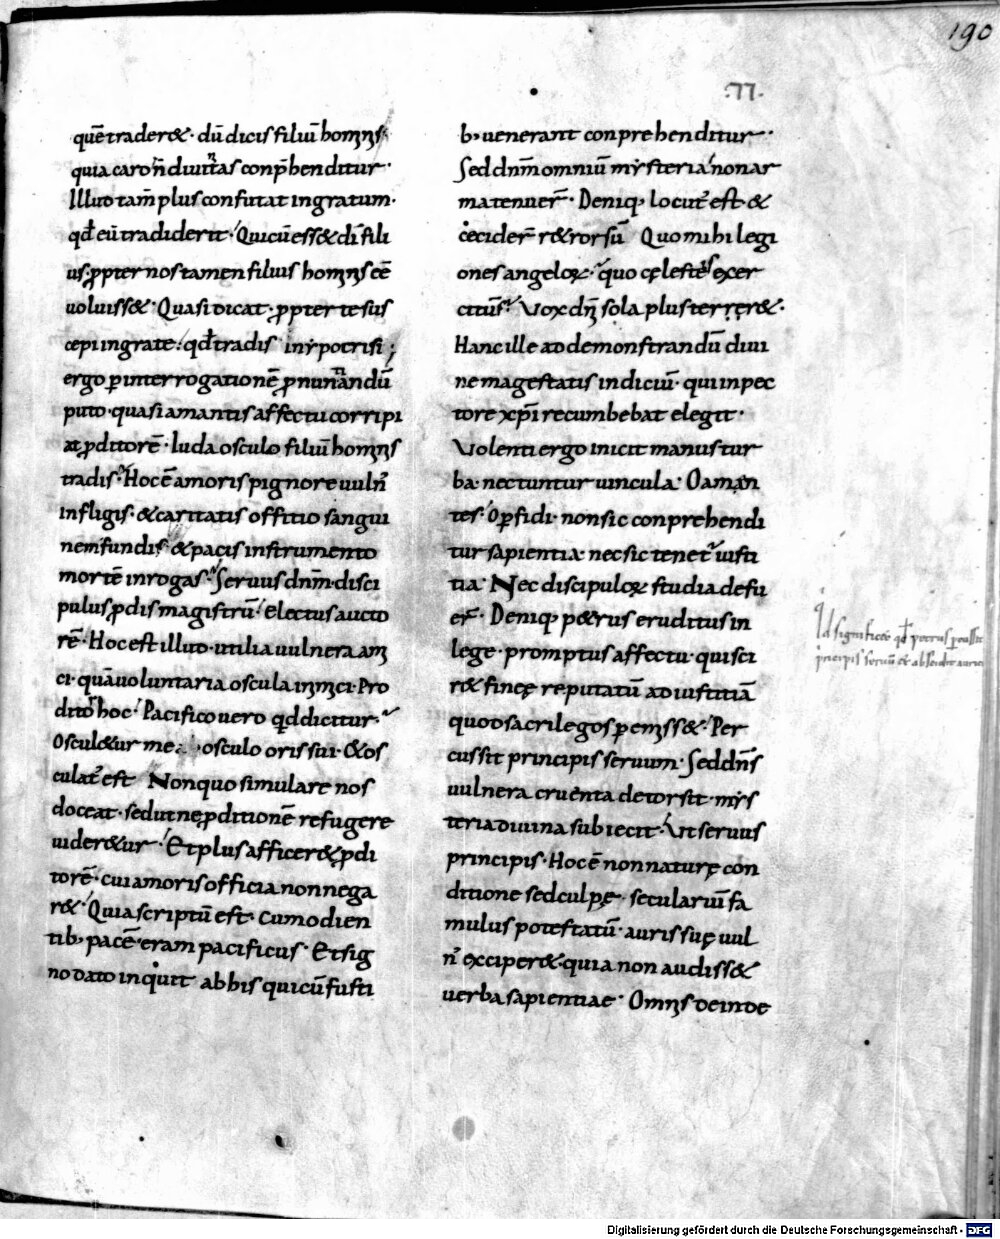 190
·77·
quē trader&· dū dicis filiū hominis·
quia caro n̄ diuinitas conp̄henditur·
Illud tam̄ plus confutat ingratum·
qđ eū tradiderit· Qui cū ess& dī fili
us ꝓpter nos tamen filius hominis eē
uoluiss&· Quasi dicat· ꝓpter te sus
cepi ingrate· qđ tradis in ypocrisi;
ergo ꝑ interrogationē ꝓnuntiandū
puto· quasi amantis affectu corripi
at ꝓditorē· Iuda osculo filiū hominis
tradis· Hoc ē amoris pignore uuln̄
infligis· & caritatis offitio sangui
nem fundis· & pacis instrumento
mortē inrogas· Seruus dn̄m· disci
pulus ꝓdis magistrū· electus aucto
rē· Hoc est illud· utilia uulnera am
ci· quā uoluntaria oscula inimici· Pro
ditori hoc· Pacifico uero quid dicitur·
Oscul&ur me osculo oris sui· & os
culat᷒ est Non quo simulare nos
doceat· sed ut ne ꝓditionē refugere
uider&ur· Et plus afficer& ꝓdi
torē· cui amoris officia non nega
r&· Quia scriptū est· Cum odien
tib; pacē· eram pacificus· Et sig
no dato inquit ab his qui cū fusti
b; uenerant conprehenditur·
Sed dn̄m omniū mysteria non ar
ma tenuer̄· Deniq; locut᷒ est &
cecider̄ r&rorsū Quo mihi legi
ones angeloꝝ· quo cęlestes exer
citus· Vox dn̄i sola plus terrer&·
Hanc ille ad demonstrandū diui
ne magestatis indiciū· qui in pec
tore xp̄i recumbebat elegit·
Volenti ergo inicit manus tur
ba· nectuntur uincula· O aman
tes· O ꝑfidi· non sic conprehendi
tur sapientia· nec sic tenet᷒ iusti
tia· Nec discipuloꝝ studia defu
er̄· Deniq; p&rus eruditus in
lege· promptus affectu· qui sci
r& fineę reputatū ad iustitiā
quod sacrilegos ꝑemiss&· Per
cussit principis seruum· Sed dn̄s
uulnera cruenta detorsit· mys
teria diuina subiecit· Vt seruus
principis· Hoc ē non naturę con
ditione sed culpę· seculariū fa
mulus potestatū· auris suę uul
n̄ exciper& quia non audiss&
uerba sapientiae· Omnis deinde
Id significat qđ petrus ꝑcussit
principis seruū & abscidit auric
Digitalisierung gefördert durch die Deutsche Forschungsgemeinschaft - DFG